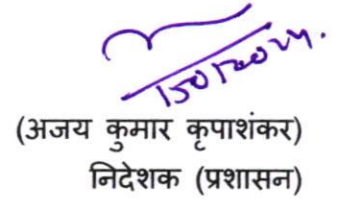 (अजय कुमार कृपाशंकर)
निदेशक (प्रशासन)